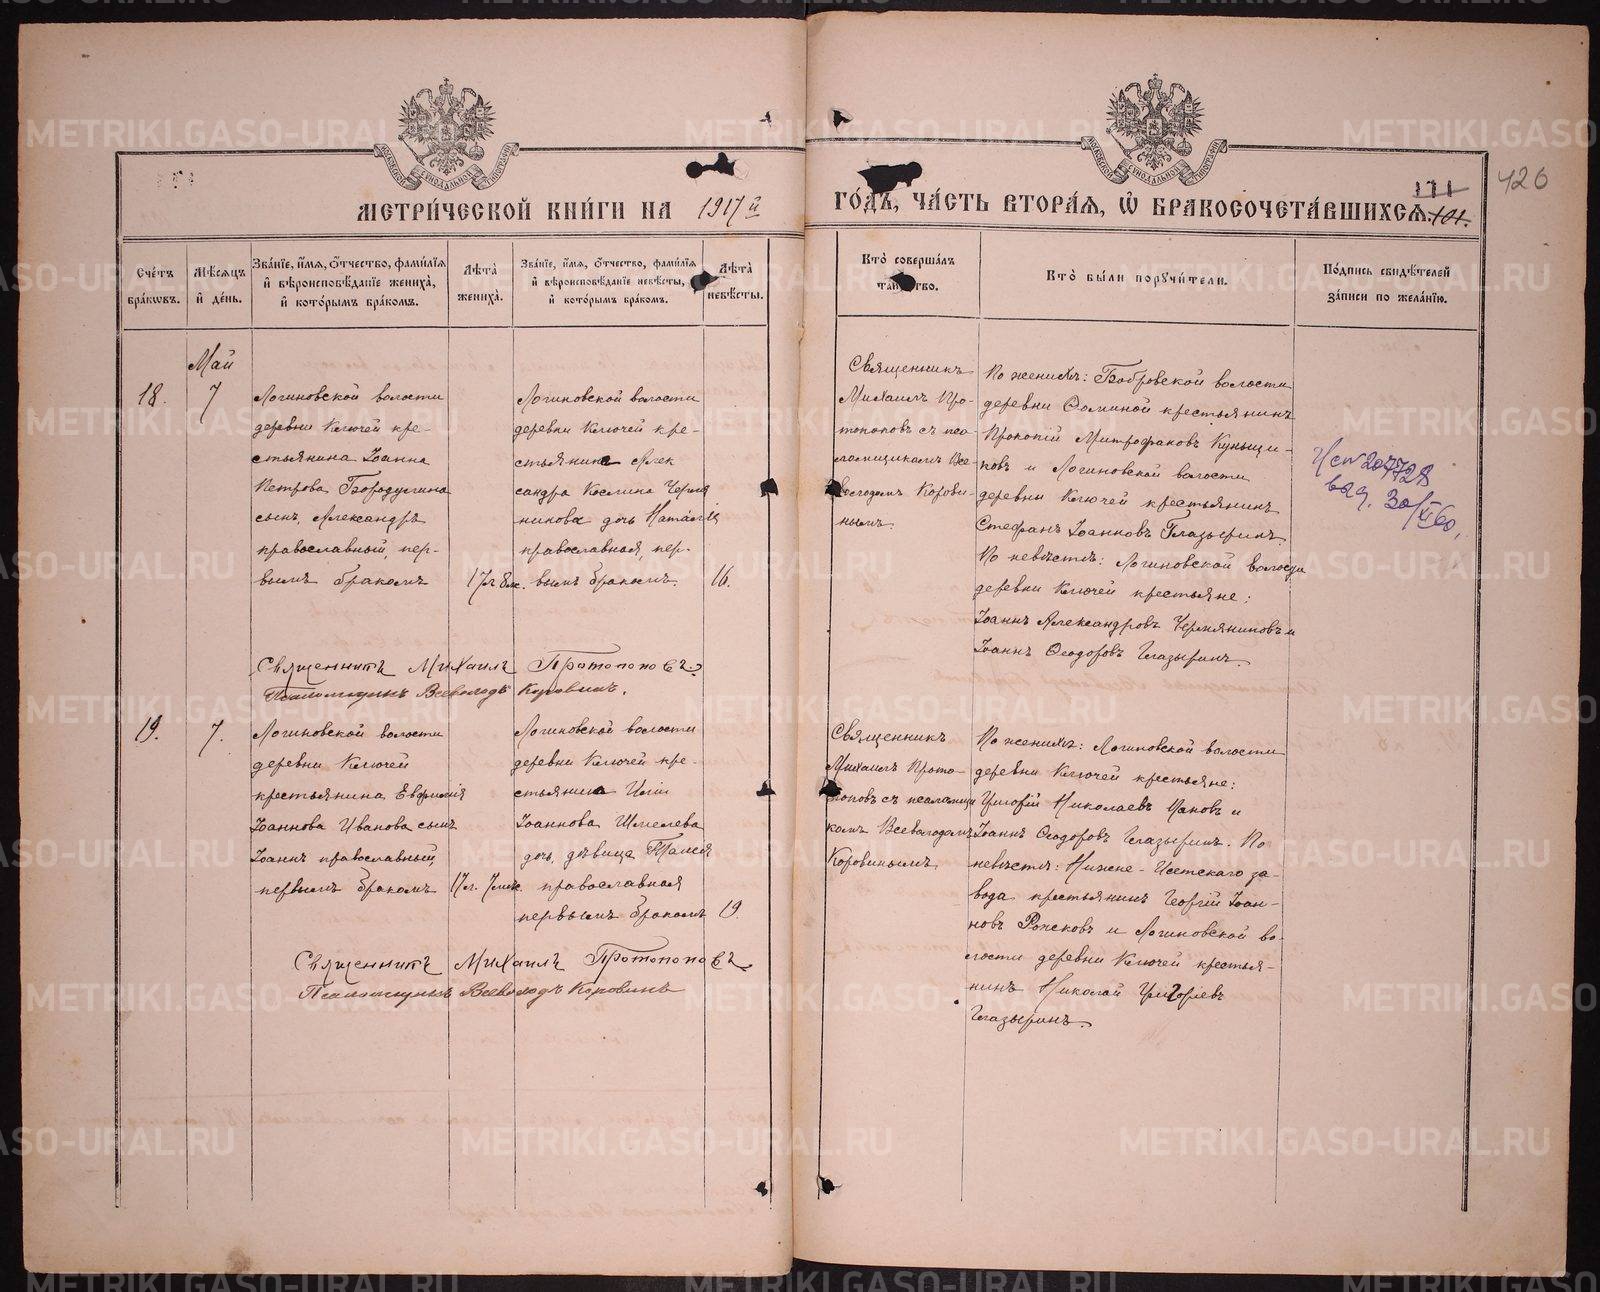 МОСКОВСКОЙ СѴНОДАЛЬНОЙ ТИПОГРАФІИ
МОСКОВСКОЙ СѴНОДАЛЬНОЙ ТИПОГРАФІИ
МЕТРИ́ЧЕСКОЙ КНИ́ГИ НА 1917 й
ГО́ДЪ, ЧА́СТЬ ВТОРА́Ѧ, Ѽ БРАКОСОЧЕТА́ВШИХСѦ.
171
101.
420
Сче́тъ бра́кѡвъ.
Мѣ́сѧцъ и҆ де́нь.
Зва́нїе, и҆́мѧ, ѻ҆́тчество, фами́лїѧ и҆ вѣроисповѣ́данїе жениха̀, и҆ кото́рымъ бра́комъ.
Лѣ́та жениха̀.
Зва́нїе, и҆́мѧ, ѻ҆́тчество, фами́лїѧ и҆ вѣроисповѣ́данїе невѣ́сты, и҆ кото́рымъ бра́комъ.
Лѣ́та невѣ́сты.
Кто̀ соверша́лъ та́инство.
Кто̀ бы́ли порꙋчи́тели.
По́дпись свидѣ́телей за́писи по жела́нїю.
Май
18.
7
Логиновской волости
деревни Ключей кре-
стьянина Іоанна
Петрова Бородулина
сынъ, Александръ
православный, пер-
вымъ бракомъ
17л 8м.
Логиновской волости
деревни Ключей кре-
стьянина Алек
сандра Космина Чермя
нинова дочь Наталія
православная, пер-
вымъ бракомъ.
16.
Священникъ
Михаилъ Про-
топоповъ съ пса-
ломщикомъ Все-
володомъ Корови-
нымъ.
По женихѣ: Бобровской волости
деревни Ѳоминой крестьянинъ
Прокопій Митрофановъ Куньщи-
ковъ и Логиновской волости
деревни Ключей крестьянинъ
Стефанъ Іоанновъ Глазыринъ.
По невѣстѣ: Логиновской волости
деревни Ключей крестьяне:
Іоаннъ Александровъ Чермяниновъ и
Іоаннъ Ѳеодоровъ Глазыринъ.
207728
выд. 30/XI 60.
Священникъ Михаилъ Протопоповъ.
Псаломщикъ Всеволодъ Коровинъ.
19.
7.
Логиновской волости
деревни Ключей
крестьянина Евфимія
Іоаннова Иванова сынъ
Іоаннъ православный
первымъ бракомъ
17л. 7мѣс.
Логиновской волости
деревни Ключей кре-
стьянина Иліи
Іоаннова Шмелева
дочь, дѣвица Таисія
православная
первымъ бракомъ
19.
Священникъ
Михаилъ Прото-
поповъ съ псаломщи
комъ Всеволодомъ
Коровинымъ.
По женихѣ: Логиновской волости
деревни Ключей крестьяне:
Григорій Николаевъ Пановъ и
Іоаннъ Ѳеодоровъ Глазыринъ. По
невѣстѣ: Нижне-Исетскаго за-
вода крестьянинъ Георгій Іоан-
новъ Рожковъ и Логиновской во-
лости деревни Ключей крестья-
нинъ Николай Григорьевъ
Глазыринъ.
Священникъ Михаилъ Протопоповъ
Псаломщикъ Всеволодъ Коровинъ
METRIKI.GASO-URAL.RU